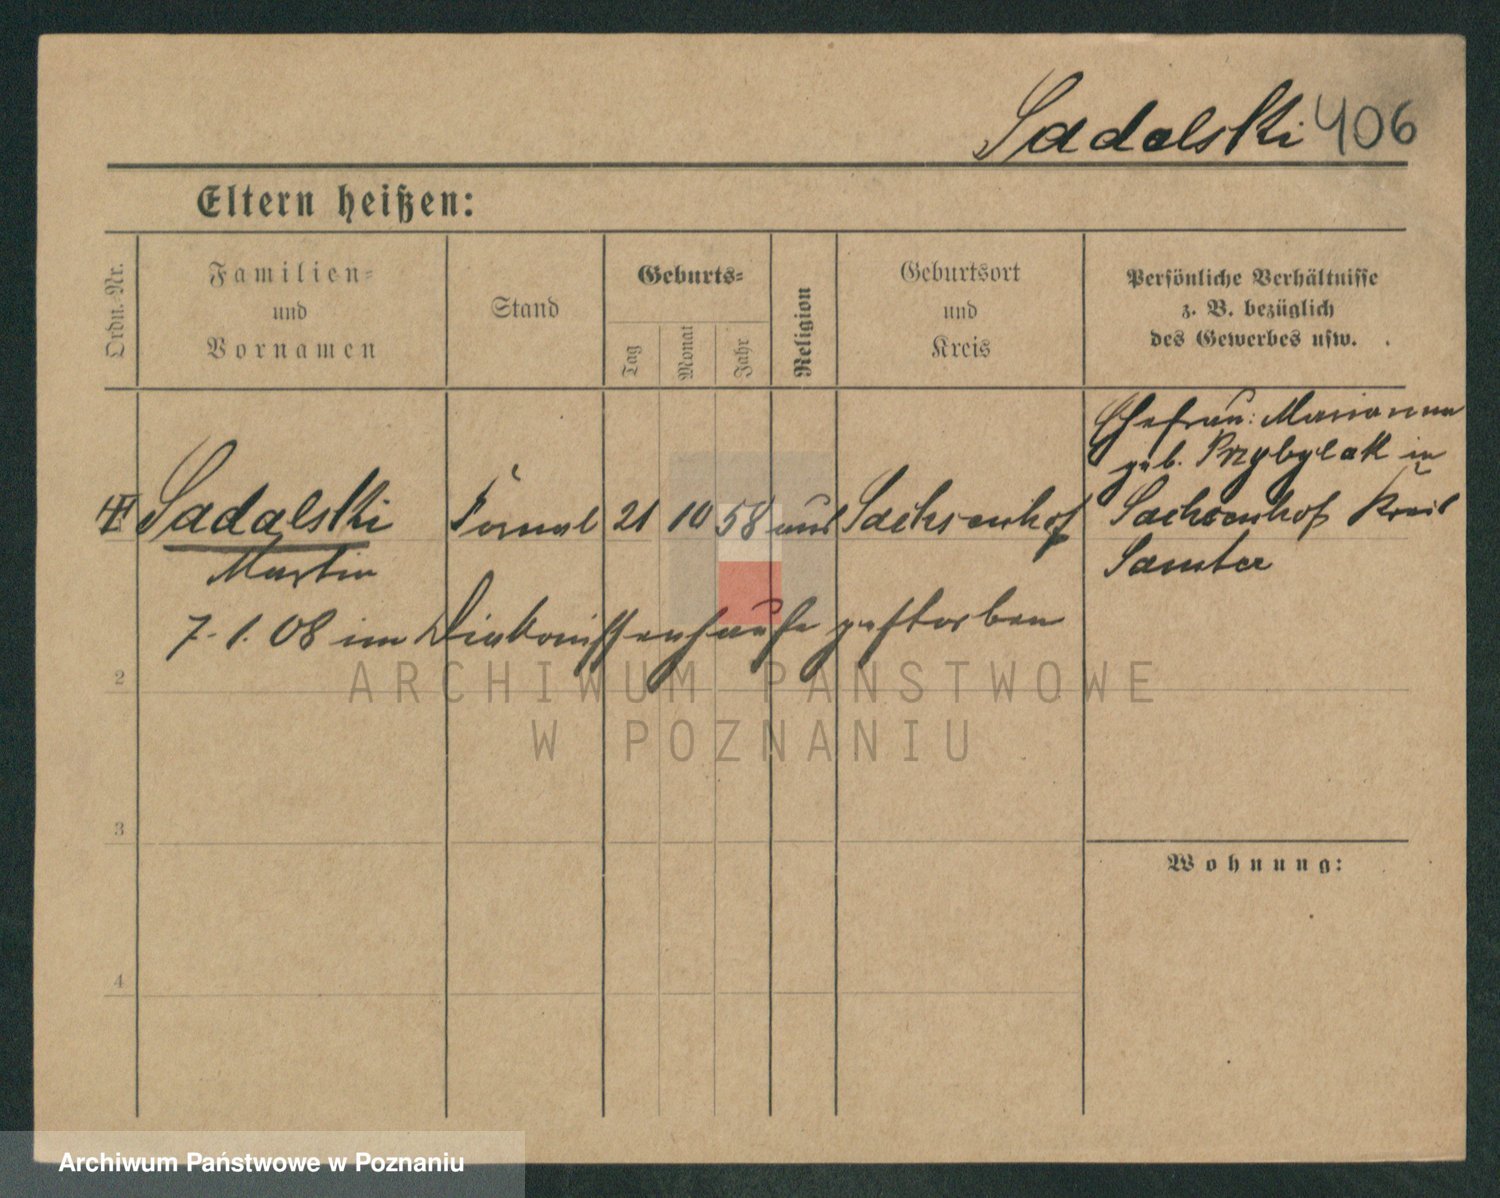 Sadalski 406
Eltern heißen:
Ordn.-Nr.
Familien-
und
Vornamen
Stand
Geburts-
Tag
Monat
Jahr
Religion
Geburtsort
und
Kreis
Persönliche Verhältnisse
z. B. bezüglich
des Gewerbes usw.
Ehefrau: Marianna
geb. Przybylak in
Sadalski Fornal 21 10 58 Sachsenhof
Sachsenhof Kreis
Samter
Martin
7.1.08 im Diakonissenhause gestorben
2
3
4
Wohnung:
ARCHIWUM PAŃSTWOWE
W POZNANIU
Archiwum Państwowe w Poznaniu